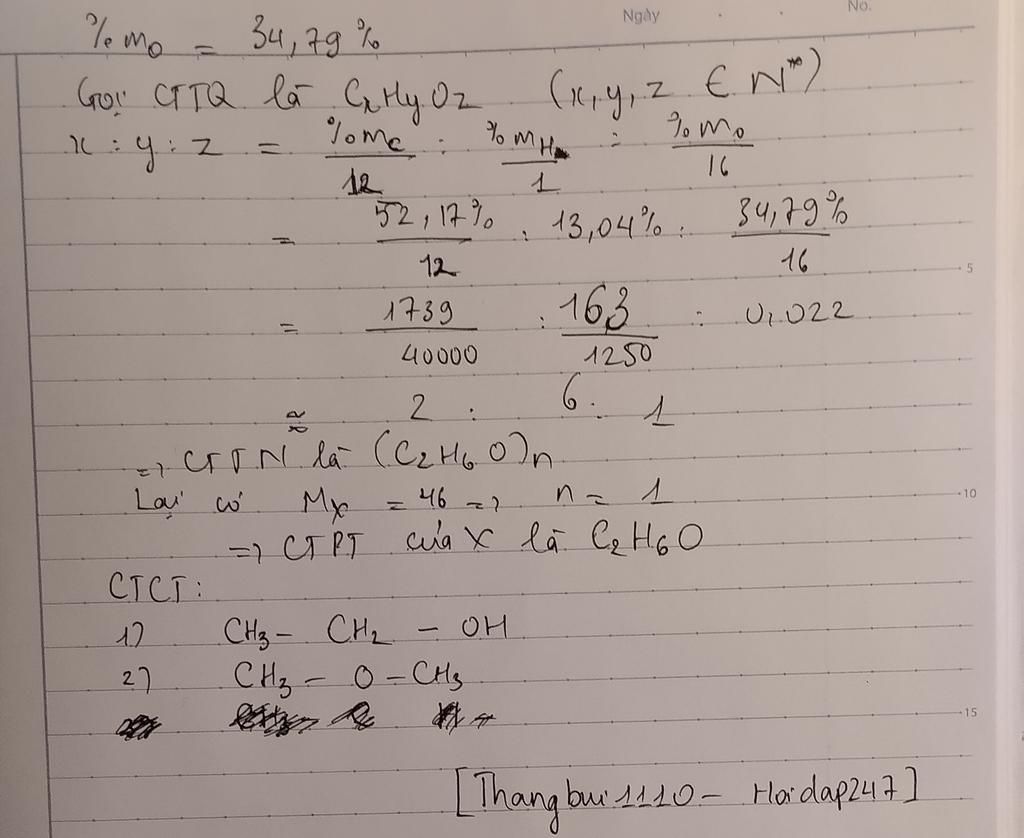 Ngày No.
%mO = 34,79%
Gọi CTTQ là CxHyOz (x,y,z ∈ N*)
x : y : z = %mC/12 : %mH/1 : %mO/16
= 52,17%/12 : 13,04% : 34,79%/16
5
= 1739/40000 : 163/1250 : 0,022
≈ 2 : 6 : 1
=> CTTN là (C2H6O)n
Lại có MX = 46 => n = 1
10
=> CTPT của X là C2H6O
CTCT:
1) CH3 - CH2 - OH
2) CH3 - O - CH3
15
[Thangbui1110 - Hoidap247]